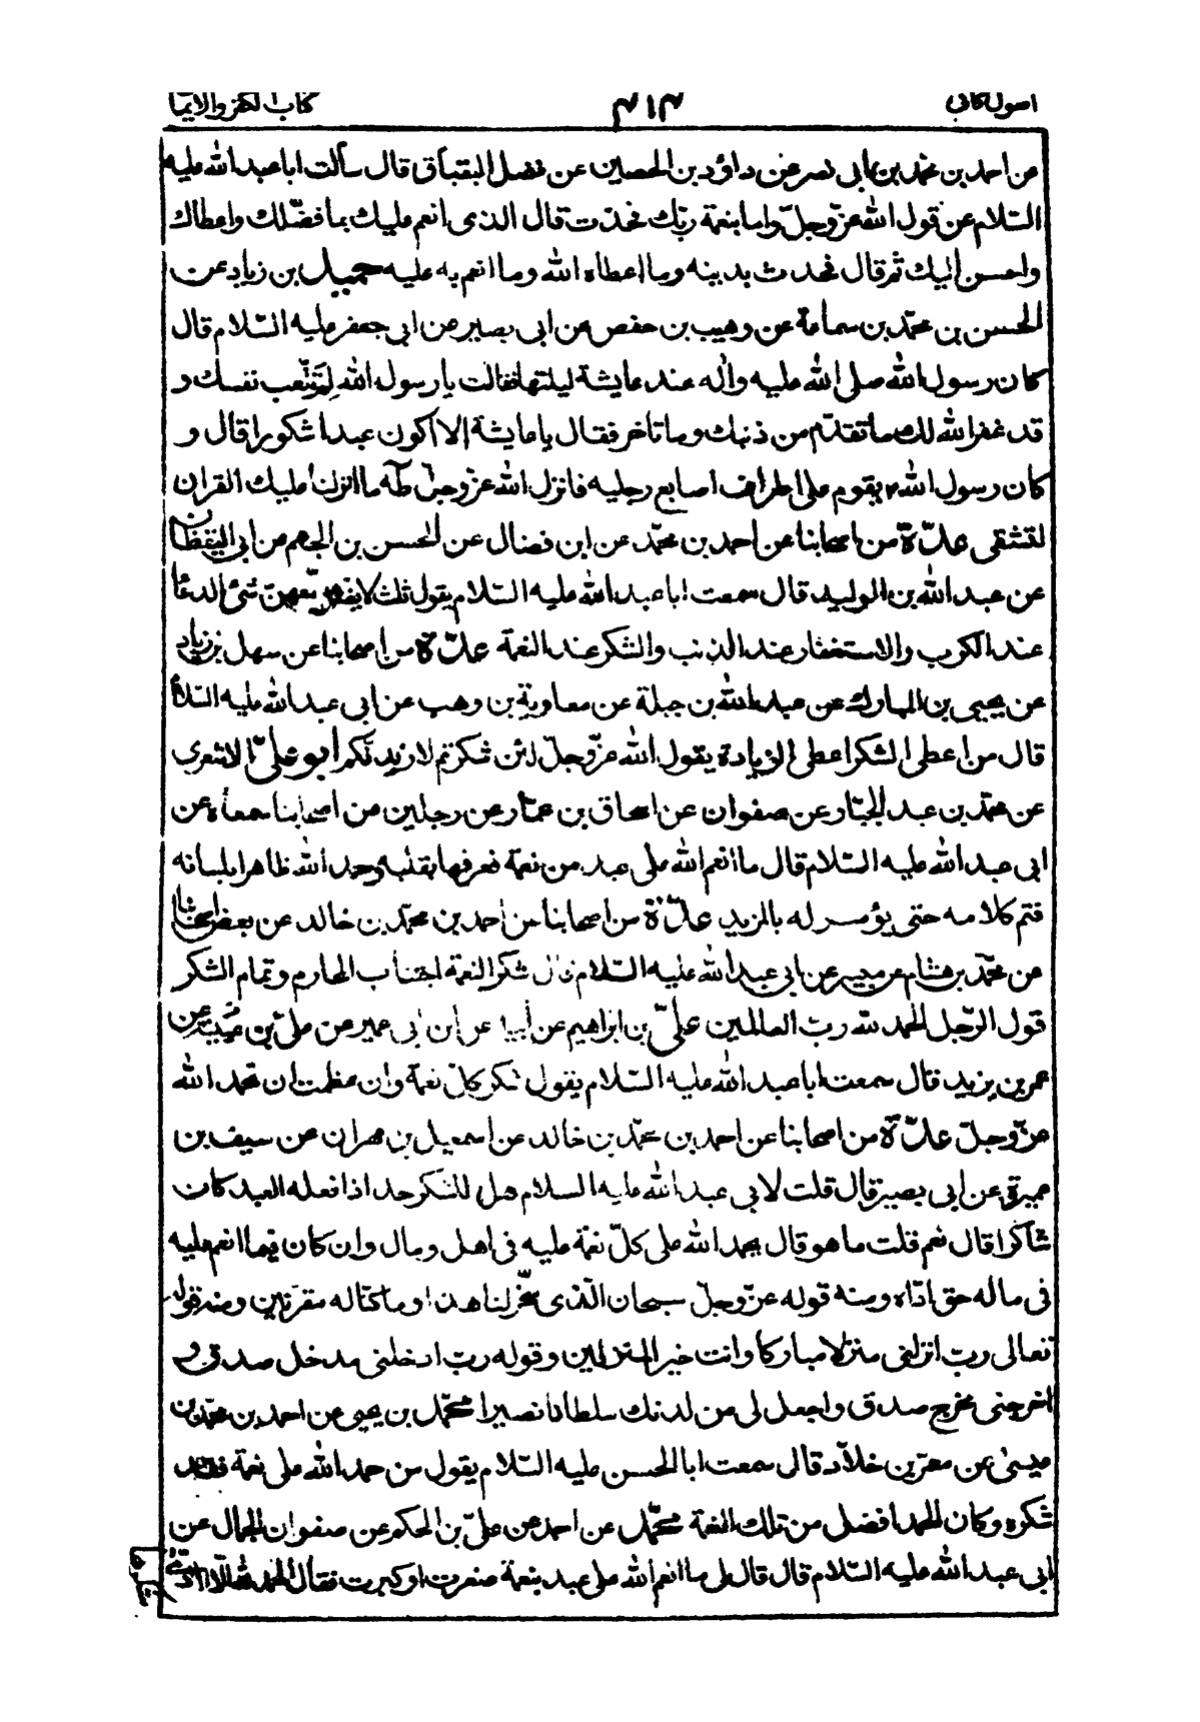 اصول كافي ٣١٣ كتاب الكفر والايما
عن احمد بن محمد بن ابى نصر عن داؤد بن الحصين عن فضل البقباق قال سألت اباعبد الله عليه
السّلام عن قول الله عزّوجلّ واما بنعمة ربّك فحدّث قال الذى انعم عليك بما فضّلك واعطاك
واحسن اليك ثم قال فحدث بدينه وما اعطاه الله وما انعم به عليه حميد بن زياد عن
الحسن بن محمّد بن سماعة عن وهيب بن حفص عن ابى بصير عن ابى جعفر عليه السّلام قال
كان رسول الله صلى الله عليه واٰله عند عايشة ليلتها فقالت يا رسول الله لِمَ تتّعب نفسك و
قد غفر الله لك ما تقدّم من ذنبك وما تاخر فقال يا عايشة الا اكون عبدا شكورا قال و
كان رسول الله ص يقوم على اطراف اصابع رجليه فانزل الله عزّ وجلّ طٰه ما انزلنا عليك القران
لتشقى عدّة من اصحابنا عن احمد بن محمّد عن ابن فضال عن الحسن بن الجهم عن ابى اليقظان
عن عبد الله بن الوليد قال سمعت اباعبد الله عليه السّلام يقول ثلث لا يضر معهن شئ الدعا
عند الكرب والاستغفار عند الذنب والشكر عند النعمة عدّة من اصحابنا عن سهل بن زياد
عن يحيى بن المبارك عن عبد الله بن جبلة عن معاوية بن وهب عن ابى عبد الله عليه السّلا
قال من اعطى الشكر اعطى الزيادة يقول الله عزّوجلّ لئن شكرتم لازيدنّكم ابو علىّ الاشعرى
عن محمّد بن عبد الجبّار عن صفوان عن اسحاق بن عمّار عن رجلين من اصحابنا سمعاه عن
ابى عبد الله عليه السّلام قال ما انعم الله على عبد من نعمة فعرفها بقلبه وحمد الله ظاهرا بلسانه
فتم كلامه حتى يؤمر له بالمزيد عدّة من اصحابنا عن احمد بن محمّد بن خالد عن بعض اصحابنا
عن محمّد بن هشام عن ميسر عن ابى عبد الله عليه السّلام قال شكر النعمة اجتناب المحارم وتمام الشكر
قول الرّجل الحمد لله ربّ العالمين علىّ بن ابراهيم عن أبيه عن ابن ابى عمير عن علىّ بن عُيَيْنة عن
عمر بن يزيد قال سمعت اباعبد الله عليه السّلام يقول شكر كلّ نعمة وان عظمت ان تحمد الله
عزّوجلّ عدّة من اصحابنا عن احمد بن محمّد بن خالد عن اسمعيل بن مهران عن سيف بن
عميرة عن ابى بصير قال قلت لابى عبد الله عليه السلام هل للشكر حد اذا فعله العبد كان
شاكرا قال نعم قلت ما هو قال يحمد الله على كلّ نعمة عليه فى اهل ومال وان كان فيما انعم عليه
فى ماله حق ادّاه ومنه قوله عزّوجلّ سبحان الّذى سخّر لنا هذا وما كنّا له مقرنين ومنه قوله
تعالى ربّ انزلنى منزلا مباركا وانت خير المنزلين وقوله ربّ ادخلنى مدخل صدق و
اخرجنى مخرج صدق واجعل لى من لدنك سلطانا نصيرا محمّد بن يحيى عن احمد بن محمّد بن
عيسىٰ عن معمّر بن خلاّد قال سمعت ابا الحسن عليه السّلام يقول من حمد الله على نعمة فقد
شكره وكان الحمد افضل من تلك النعمة محمّد عن احمد عن علىّ بن الحكم عن صفوان الجمال عن
ابى عبد الله عليه السّلام قال قال لى ما انعم الله على عبد بنعمة صغرت او كبرت فقال الحمد لله الاّ ادّى